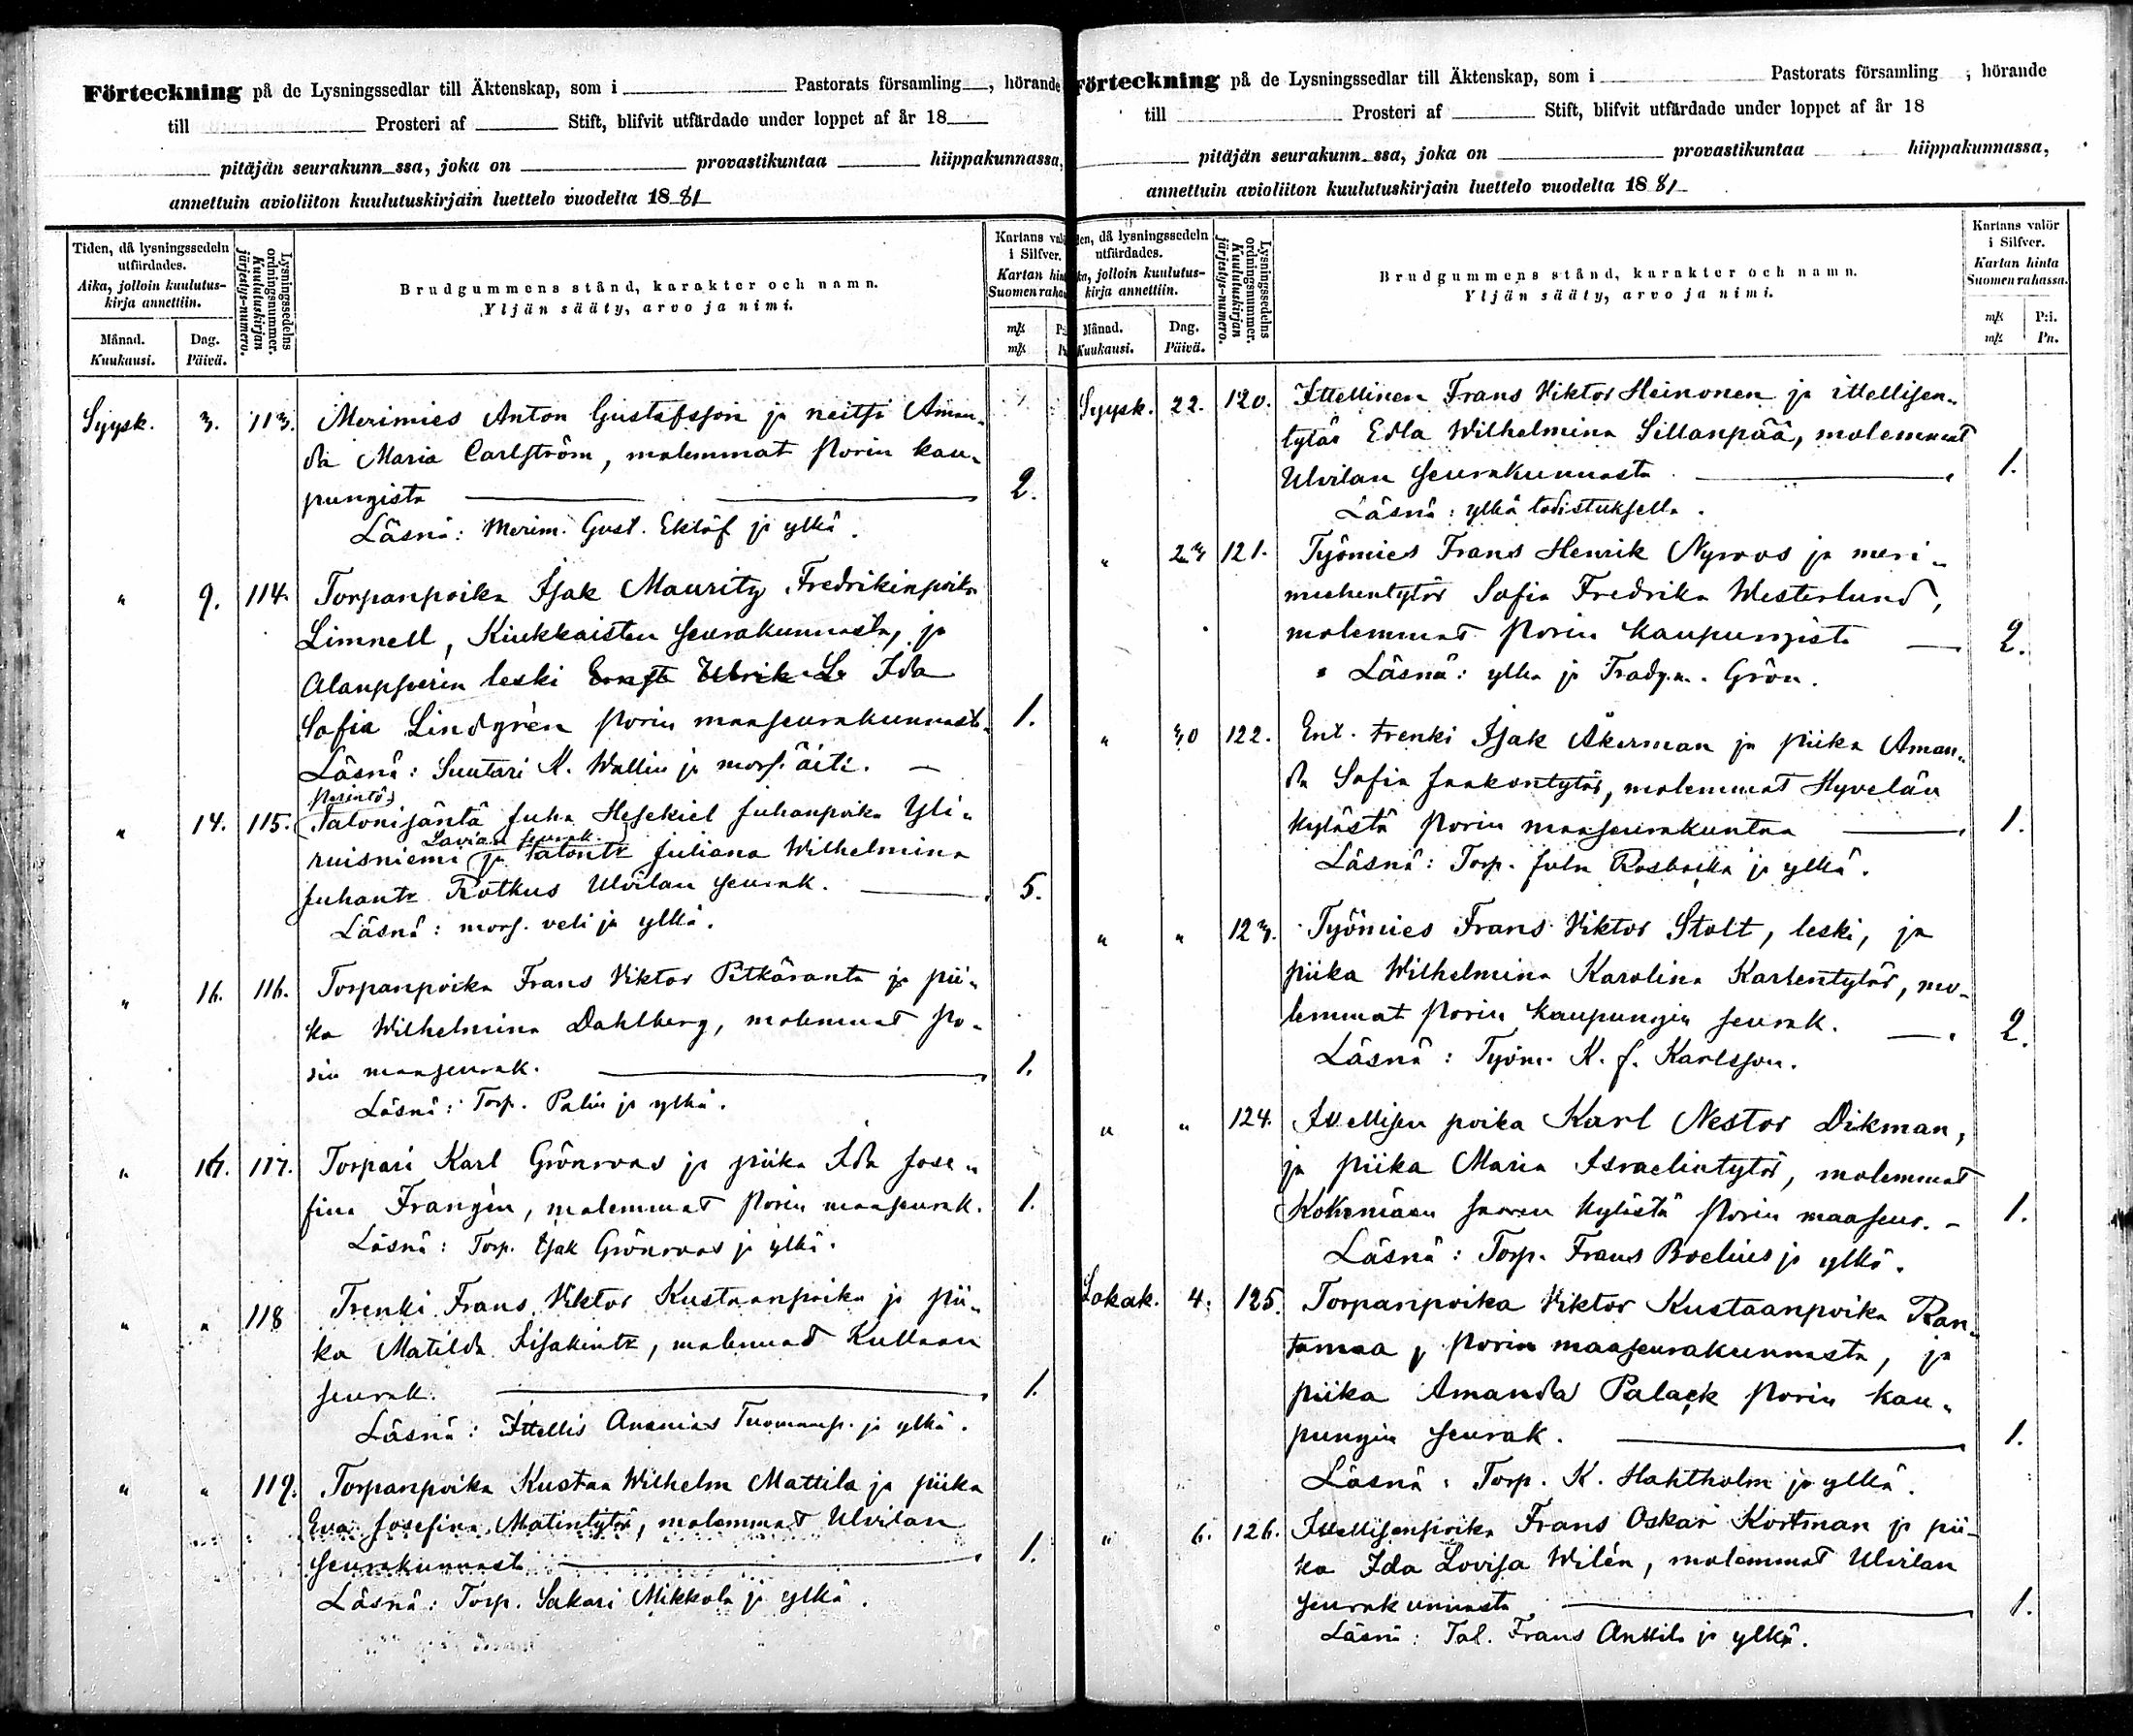 Förteckning på de Lysningssedlar till Äktenskap, som i Pastorats församling, hörande
till Prosteri af Stift, blifvit utfärdade under loppet af år 18
pitäjän seurakunn ssa, joka on provastikuntaa hiippakunnassa,
annettuin avioliiton kuulutuskirjain luettelo vuodelta 1881
Tiden, då lysningssedeln utfärdades.
Aika, jolloin kuulutuskirja annettiin.
Månad. Kuukausi.
Dag. Päivä.
Lysningssedelns ordningsnummer.
Kuulutuskirjan järjestys-numero.
Brudgummens stånd, karakter och namn.
Yljän sääty, arvo ja nimi.
Kartans valör i Silfver.
Kartan hinta Suomen rahassa
mk
mk
Syysk. 3. 113. Merimies Anton Gustafsson ja neitsi Aman-
da Maria Carlström, molemmat Porin kau-
pungista 2.
Läsnä: Merim. Gust. Eklöf ja ylkä.
" 9. 114. Torpanpoika Isak Mauritz Fredrikinpoika
Limnell, Kiukkaisten seurakunnasta, ja
Alaupseerin leski Ernst Ulrik L. Ida
Sofia Lindgrén Porin maaseurakunnasta 1.
Läsnä: Suutari K. Wallin ja mors. äiti.
Perintö
" 14. 115. Talonisäntä Juha Hesekiel Juhanpoika Yli-
Lavian seurak.
ruisniemi ja talontr Juliana Wilhelmina
Juhantr Rotkus Ulvilan seurak. 5.
Läsnä: mors. veli ja ylkä.
" 16. 116. Torpanpoika Frans Viktor Pitkäranta ja pii-
ka Wilhelmina Dahlberg, molemmat Po-
rin maaseurak. 1.
Läsnä: Torp. Palin ja ylkä.
" 17. 117. Torpari Karl Grönroos ja piika Ida Jose-
fina Franzén, molemmat Porin maaseurak. 1.
Läsnä: Torp. Isak Grönroos ja ylkä.
" " 118 Trenki Frans Viktor Kustaanpoika ja pii-
ka Matilda Iisakintr, molemmat Kullaan
seurak. 1.
Läsnä: Ittellis Ananias Tuomaanp. ja ylkä.
" " 119. Torpanpoika Kustaa Wilhelm Mattila ja piika
Eva Josefina Matintytär, molemmat Ulvilan
seurakunnasta 1.
Läsnä: Torp. Sakari Mikkola ja ylkä.
Förteckning på de Lysningssedlar till Äktenskap, som i Pastorats församling, hörande
till Prosteri af Stift, blifvit utfärdade under loppet af år 18
pitäjän seurakunn ssa, joka on provastikuntaa hiippakunnassa,
annettuin avioliiton kuulutuskirjain luettelo vuodelta 1881
den, då lysningssedeln utfärdades.
ka, jolloin kuulutuskirja annettiin.
Månad. Kuukausi.
Dag. Päivä.
Lysningssedelns ordningsnummer.
Kuulutuskirjan järjestys-numero.
Brudgummens stånd, karakter och namn.
Yljän sääty, arvo ja nimi.
Kartans valör i Silfver.
Kartan hinta Suomen rahassa.
mk P:i.
mk Pn.
Syysk. 22. 120. Ittellinen Frans Viktor Heinonen ja ittellisen-
tytär Edla Wilhelmina Sillanpää, molemmat
Ulvilan seurakunnasta 1.
Läsnä: ylkä todistuksella.
" 23 121. Työmies Frans Henrik Nyroos ja meri-
miehentytär Sofia Fredrika Westerlund,
molemmat Porin kaupungista 2.
Läsnä: ylkä ja Trädgm. Grön.
" 30 122. Ent. trenki Isak Åkerman ja piika Aman-
da Sofia Jaakontytär, molemmat Hyvelän
kylästä Porin maaseurakuntaa 1.
Läsnä: Torp. Juha Rosbacka ja ylkä.
" " 123. Työmies Frans Viktor Stolt, leski, ja
piika Wilhelmina Karolina Karlentytär, mo-
lemmat Porin kaupungin seurak. 2.
Läsnä: Työm. K. J. Karlsson.
" " 124. Itellisen poika Karl Nestor Dikman,
ja piika Maria Israelintytär, molemmat
Kokemäen saaren kylästä Porin maaseur. 1.
Läsnä: Torp. Frans Boelius ja ylkä.
Lokak. 4. 125. Torpanpoika Viktor Kustaanpoika Ran-
tamaa, Porin maaseurakunnasta, ja
piika Amanda Palack Porin kau-
pungin seurak. 1.
Läsnä: Torp. K. Hahtholm ja ylkä.
" 6. 126. Itellisenpoika Frans Oskar Kortman ja pii-
ka Ida Lovisa Wilén, molemmat Ulvilan
seurakunnasta 1.
Läsnä: Tal. Frans Anttila ja ylkä.